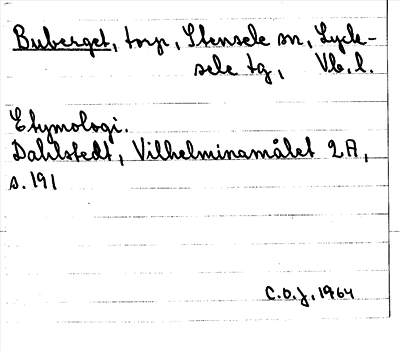 Buberget, torp, Stensele sn, Lyck-
sele tg, Vb. l.
Etymologi.
Dahlstedt, Vilhelminamålet 2A,
s. 191
C.O.J., 1964